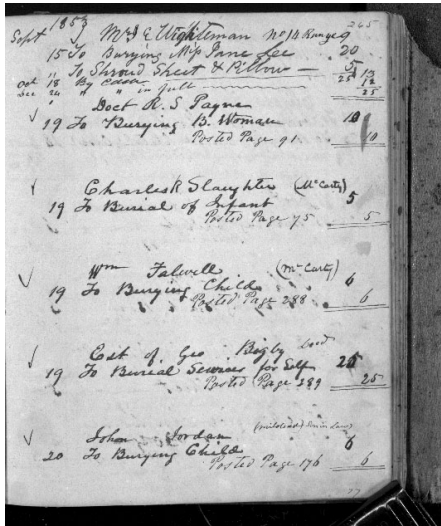 265
Sept 1853 Mrs J E Wightman No 14 Range 9
15 To Burying Miss Jane Lee 20
" To Shroud Sheet & Pillow 5
Oct 18 By Cash 25 13
Dec 24 " " in full 12
25
Doct R. S. Payne
19 To Burying B. Woman 10
Posted Page 91 10
Charles R Slaughter (McCarty)
19 To Burial of Infant 5
Posted Page 75 5
Wm Falwell (McCarty)
19 To Burying Child 6
Posted Page 288 6
Est of Geo Bigby
19 To Burial Services for Self 25
Posted Page 289 25
John Jordan
20 To Burying Child 6
Posted Page 176 6